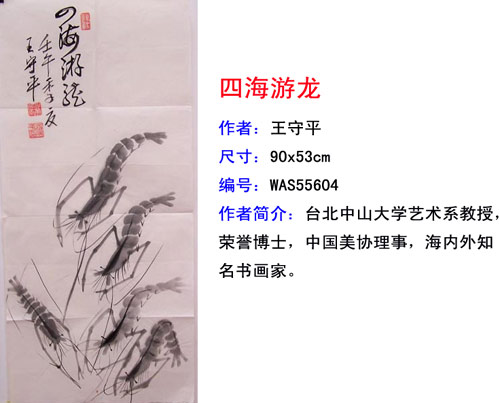 四海游龍
壬午季夏
王守平
四海游龙
作者：王守平
尺寸：90x53cm
编号：WAS55604
作者简介：台北中山大学艺术系教授，
荣誉博士，中国美协理事，海内外知
名书画家。